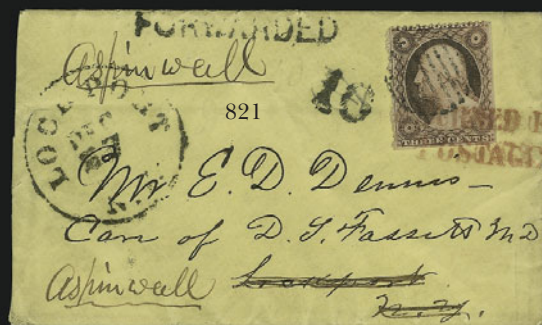 FORWARDED
Aspinwall
LOCKPORT N.Y.
DEC
10
821
THREE CENTS
POSTAGE
Mr E. D. Dennis
Care of D. S. Fassett M D
Aspinwall
Lockport
N. Y.